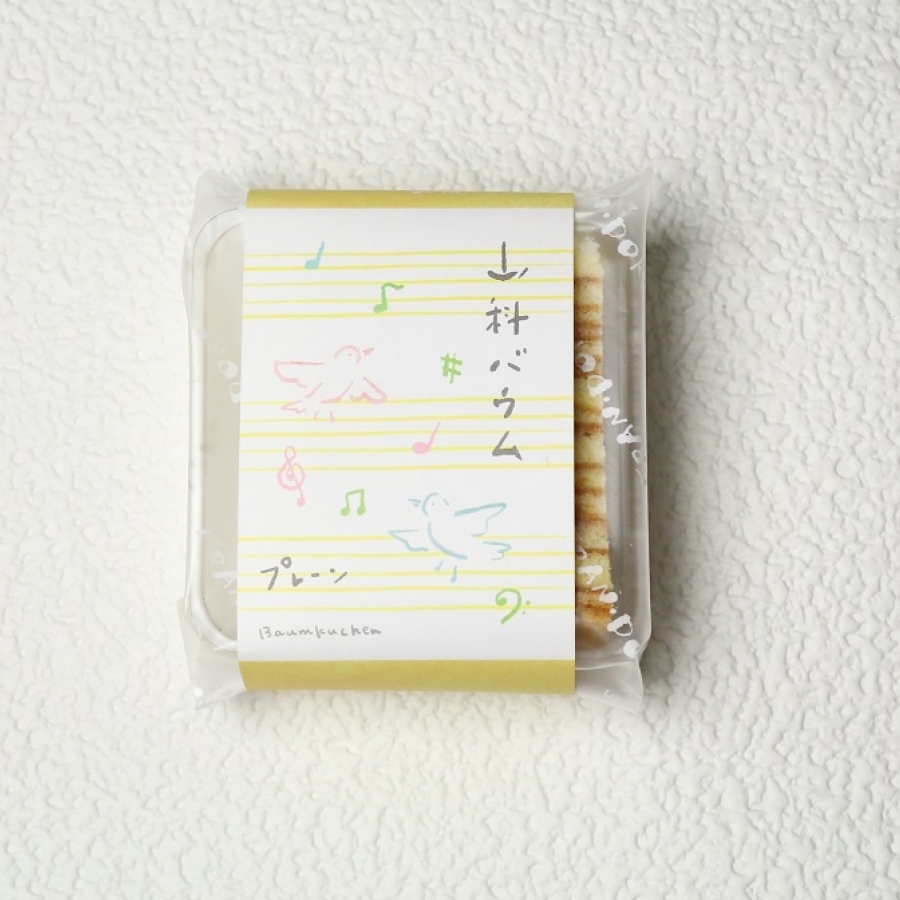 山科バウム
プレーン
Baumkuchen